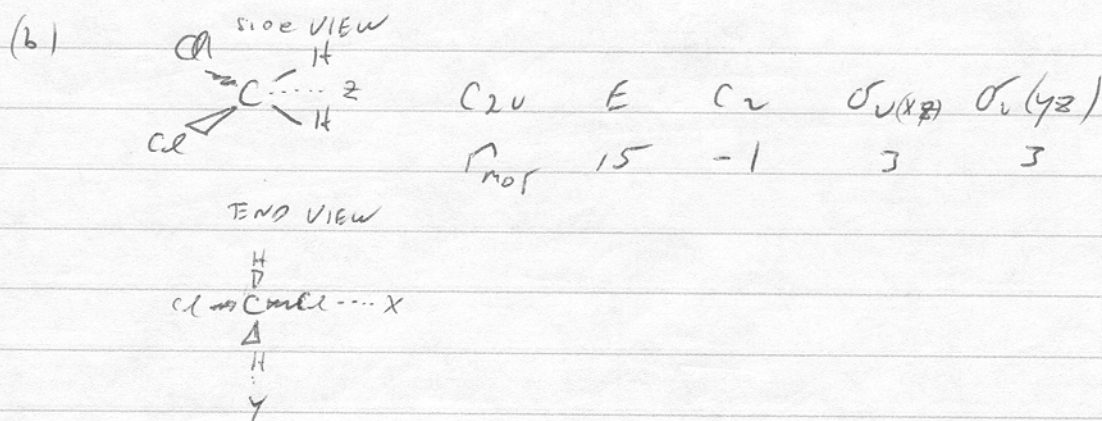 (b)
SIDE VIEW
Cl H
C ····· z C2v E C2 σv(xz) σv(yz)
Cl H
Γmot 15 -1 3 3
END VIEW
H
Cl C Cl ···· X
H
Y